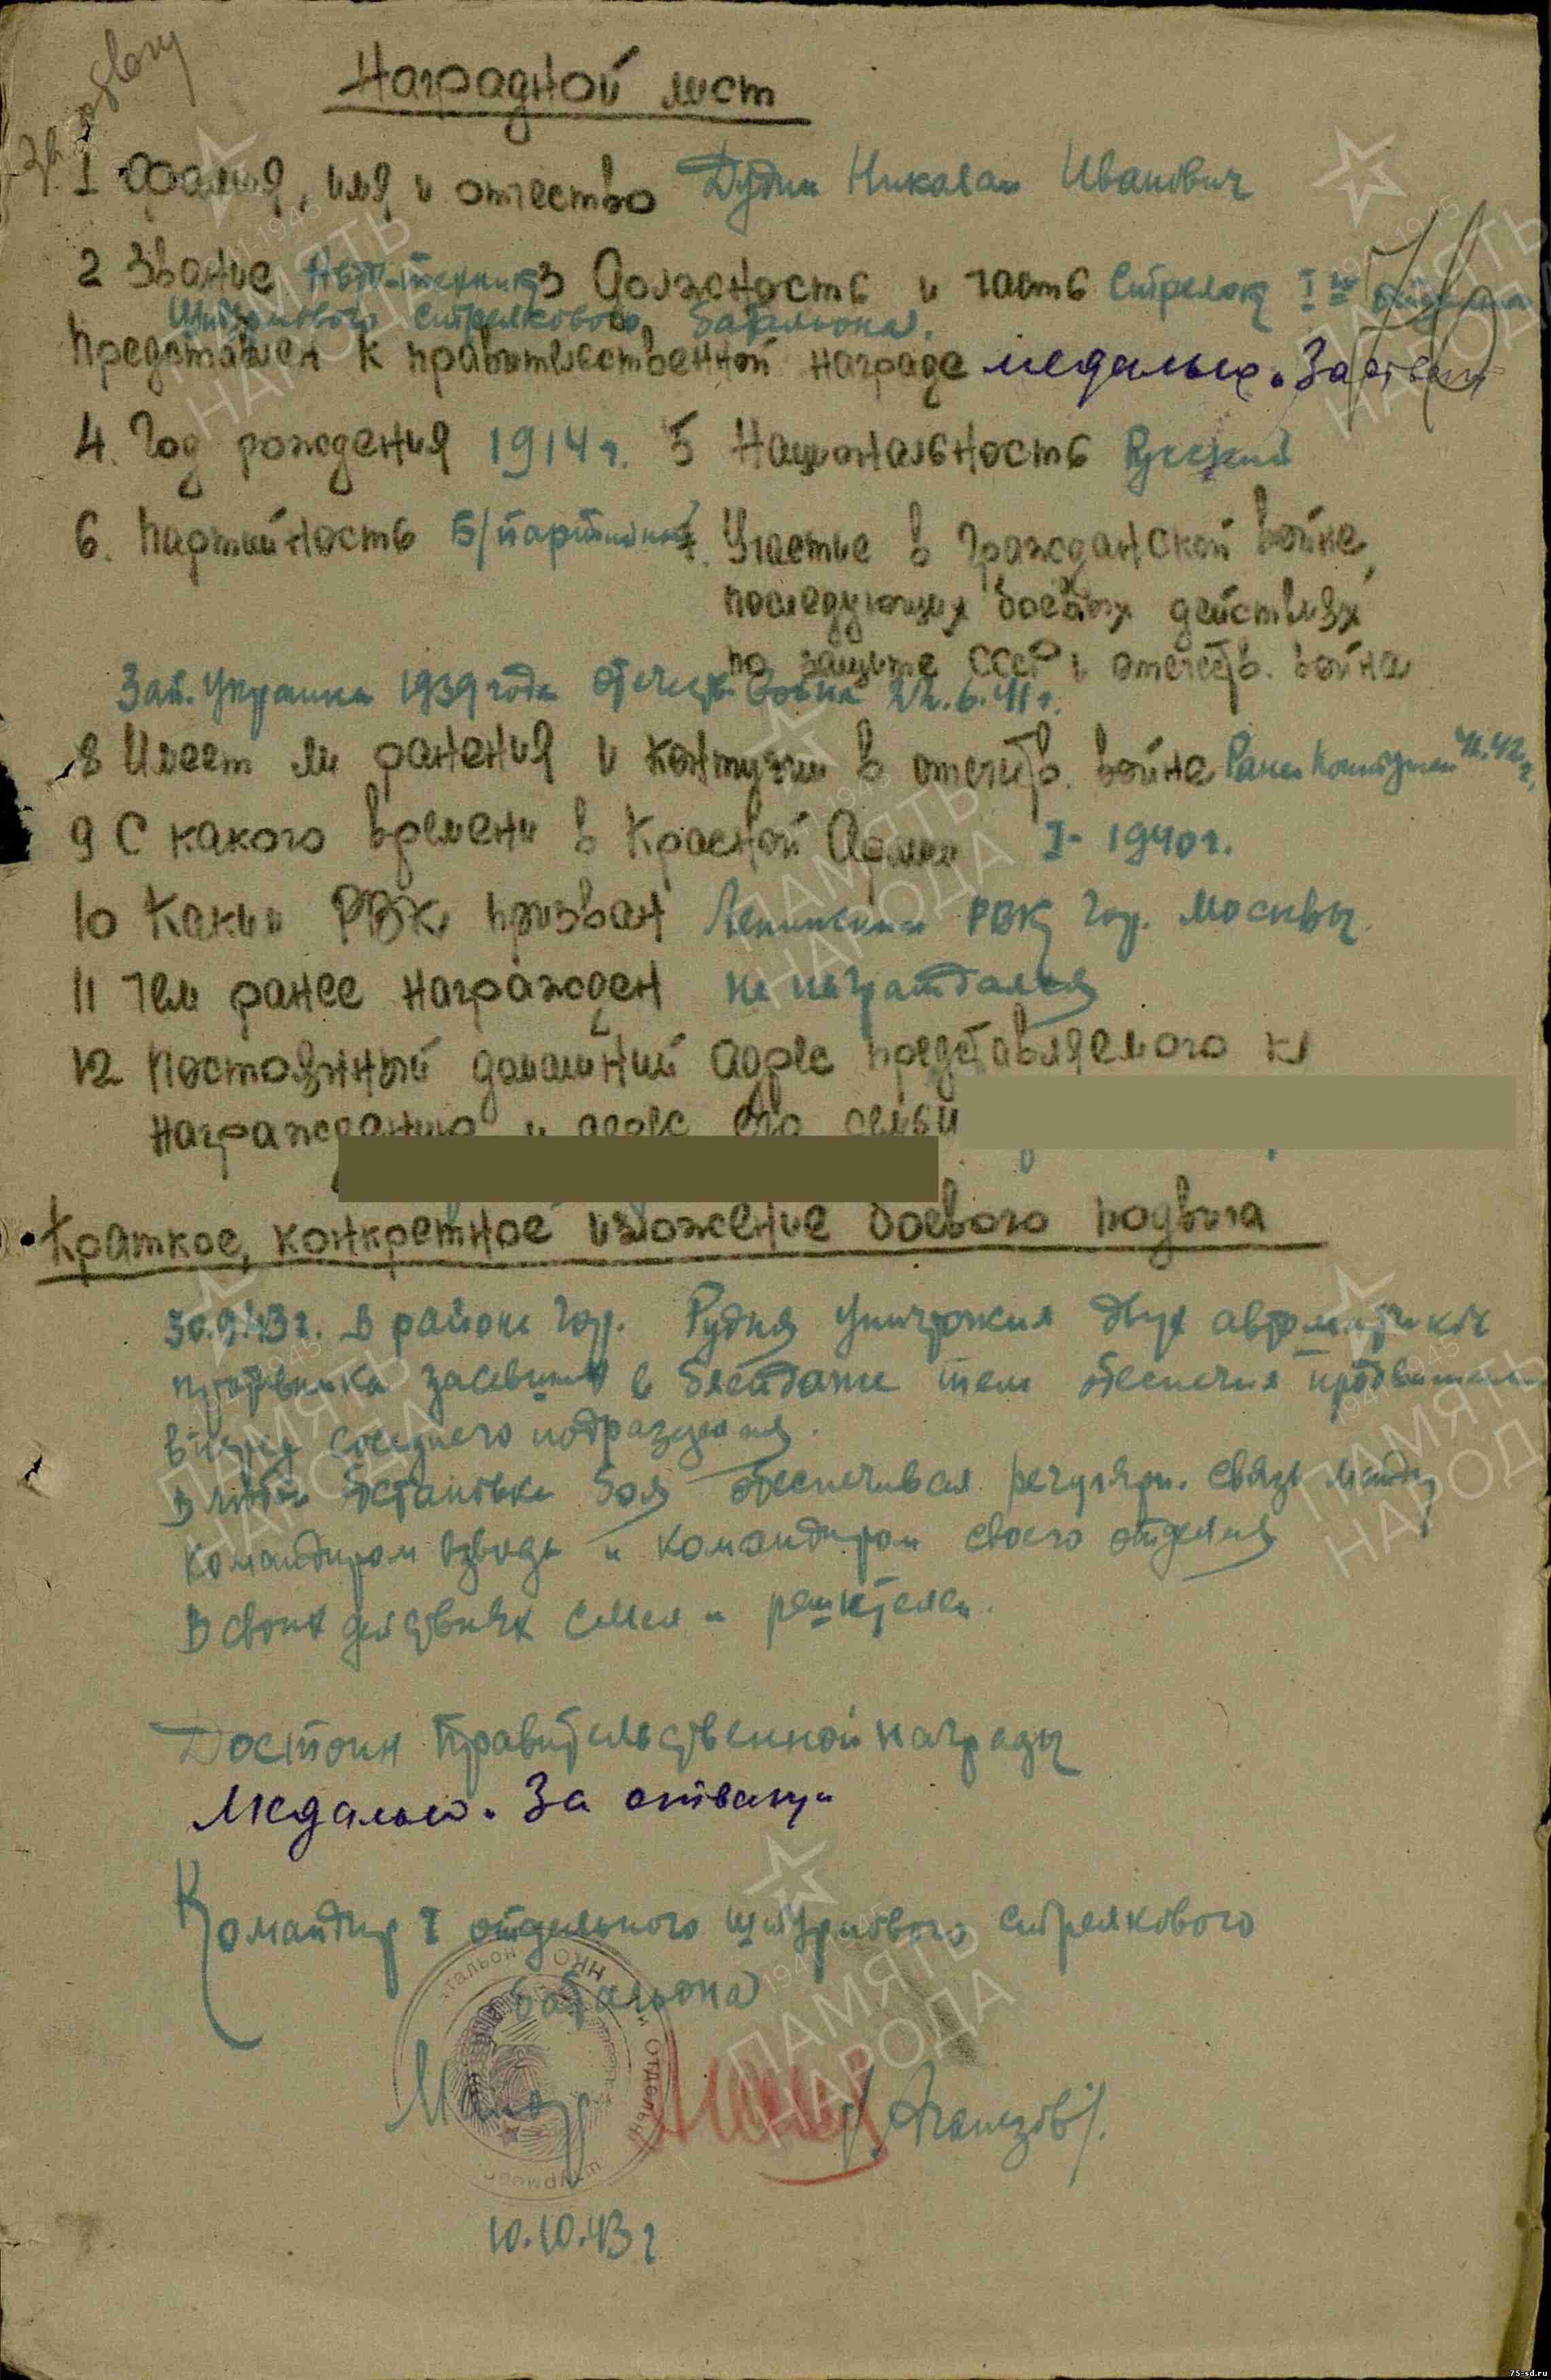 Наградной лист
1 Фамилия, имя и отчество Дудин Николай Иванович
2 Звание Авт-техник 3 Должность и часть Стрелок 1го отдельного
Штурмового стрелкового батальона.
Представлен к правительственной награде медалью „За отвагу“
4. Год рождения 1914 г. 5 Национальность Русский
6. Партийность Б/партийный 7. Участие в гражданской войне,
последующих боевых действиях
по защите СССР и отечеств. войне
Зап. Украина 1939 года Отечеств. война 22.6.41 г.
8 Имеет ли ранения и контузии в отечеств. войне Ранен Контужен 41.42 г.
9 С какого времени в Красной Армии I-1940 г.
10 Каким РВК призван Ленинским РВК гор. Москвы
11 Чем ранее награжден не награждался
12 Постоянный домашний адрес представляемого к
награждению и адрес его семьи
Краткое, конкретное изложение боевого подвига
30.9.43 г. В районе гор. Рудня уничтожил двух автоматчиков
противника засевших в блендаже тем обеспечил продвижение
вперед соседнего подразделения.
В любой обстановке боя обеспечивал регулярн. связь между
командиром взвода и командиром своего отделения
В своих действиях смел и решителен.
Достоин Правительственной награды
Медалью „За отвагу“
Командир 1 отдельного штурмового стрелкового
батальона
Майор /Агамузов/.
10.10.43 г
ПАМЯТЬ
НАРОДА
1941-1945
75-sd.ru